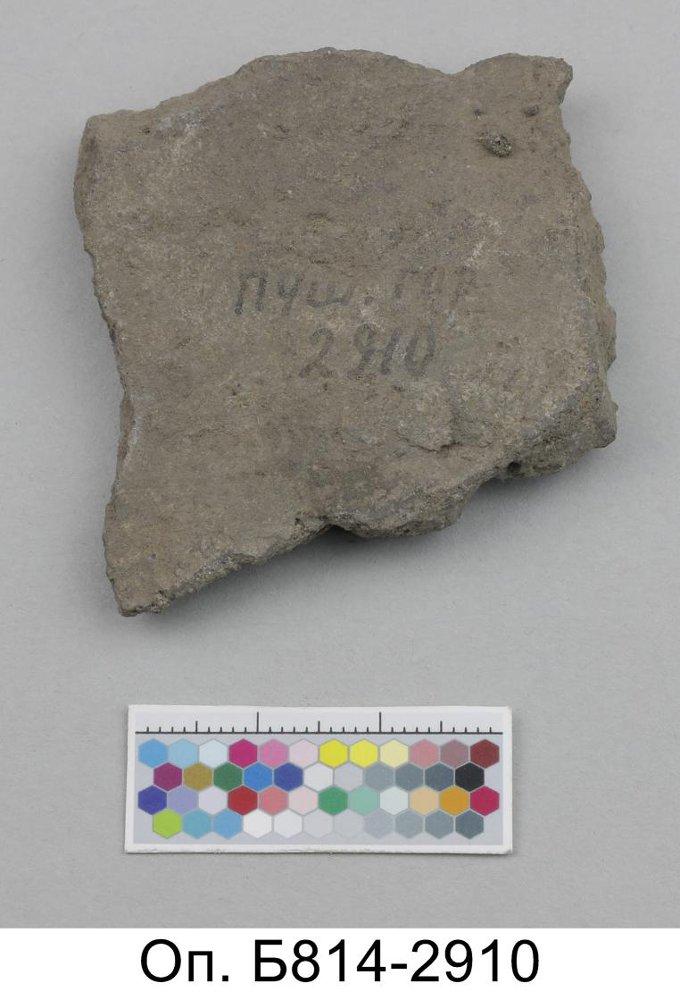 Пуш. гор
2910
Оп. Б814-2910